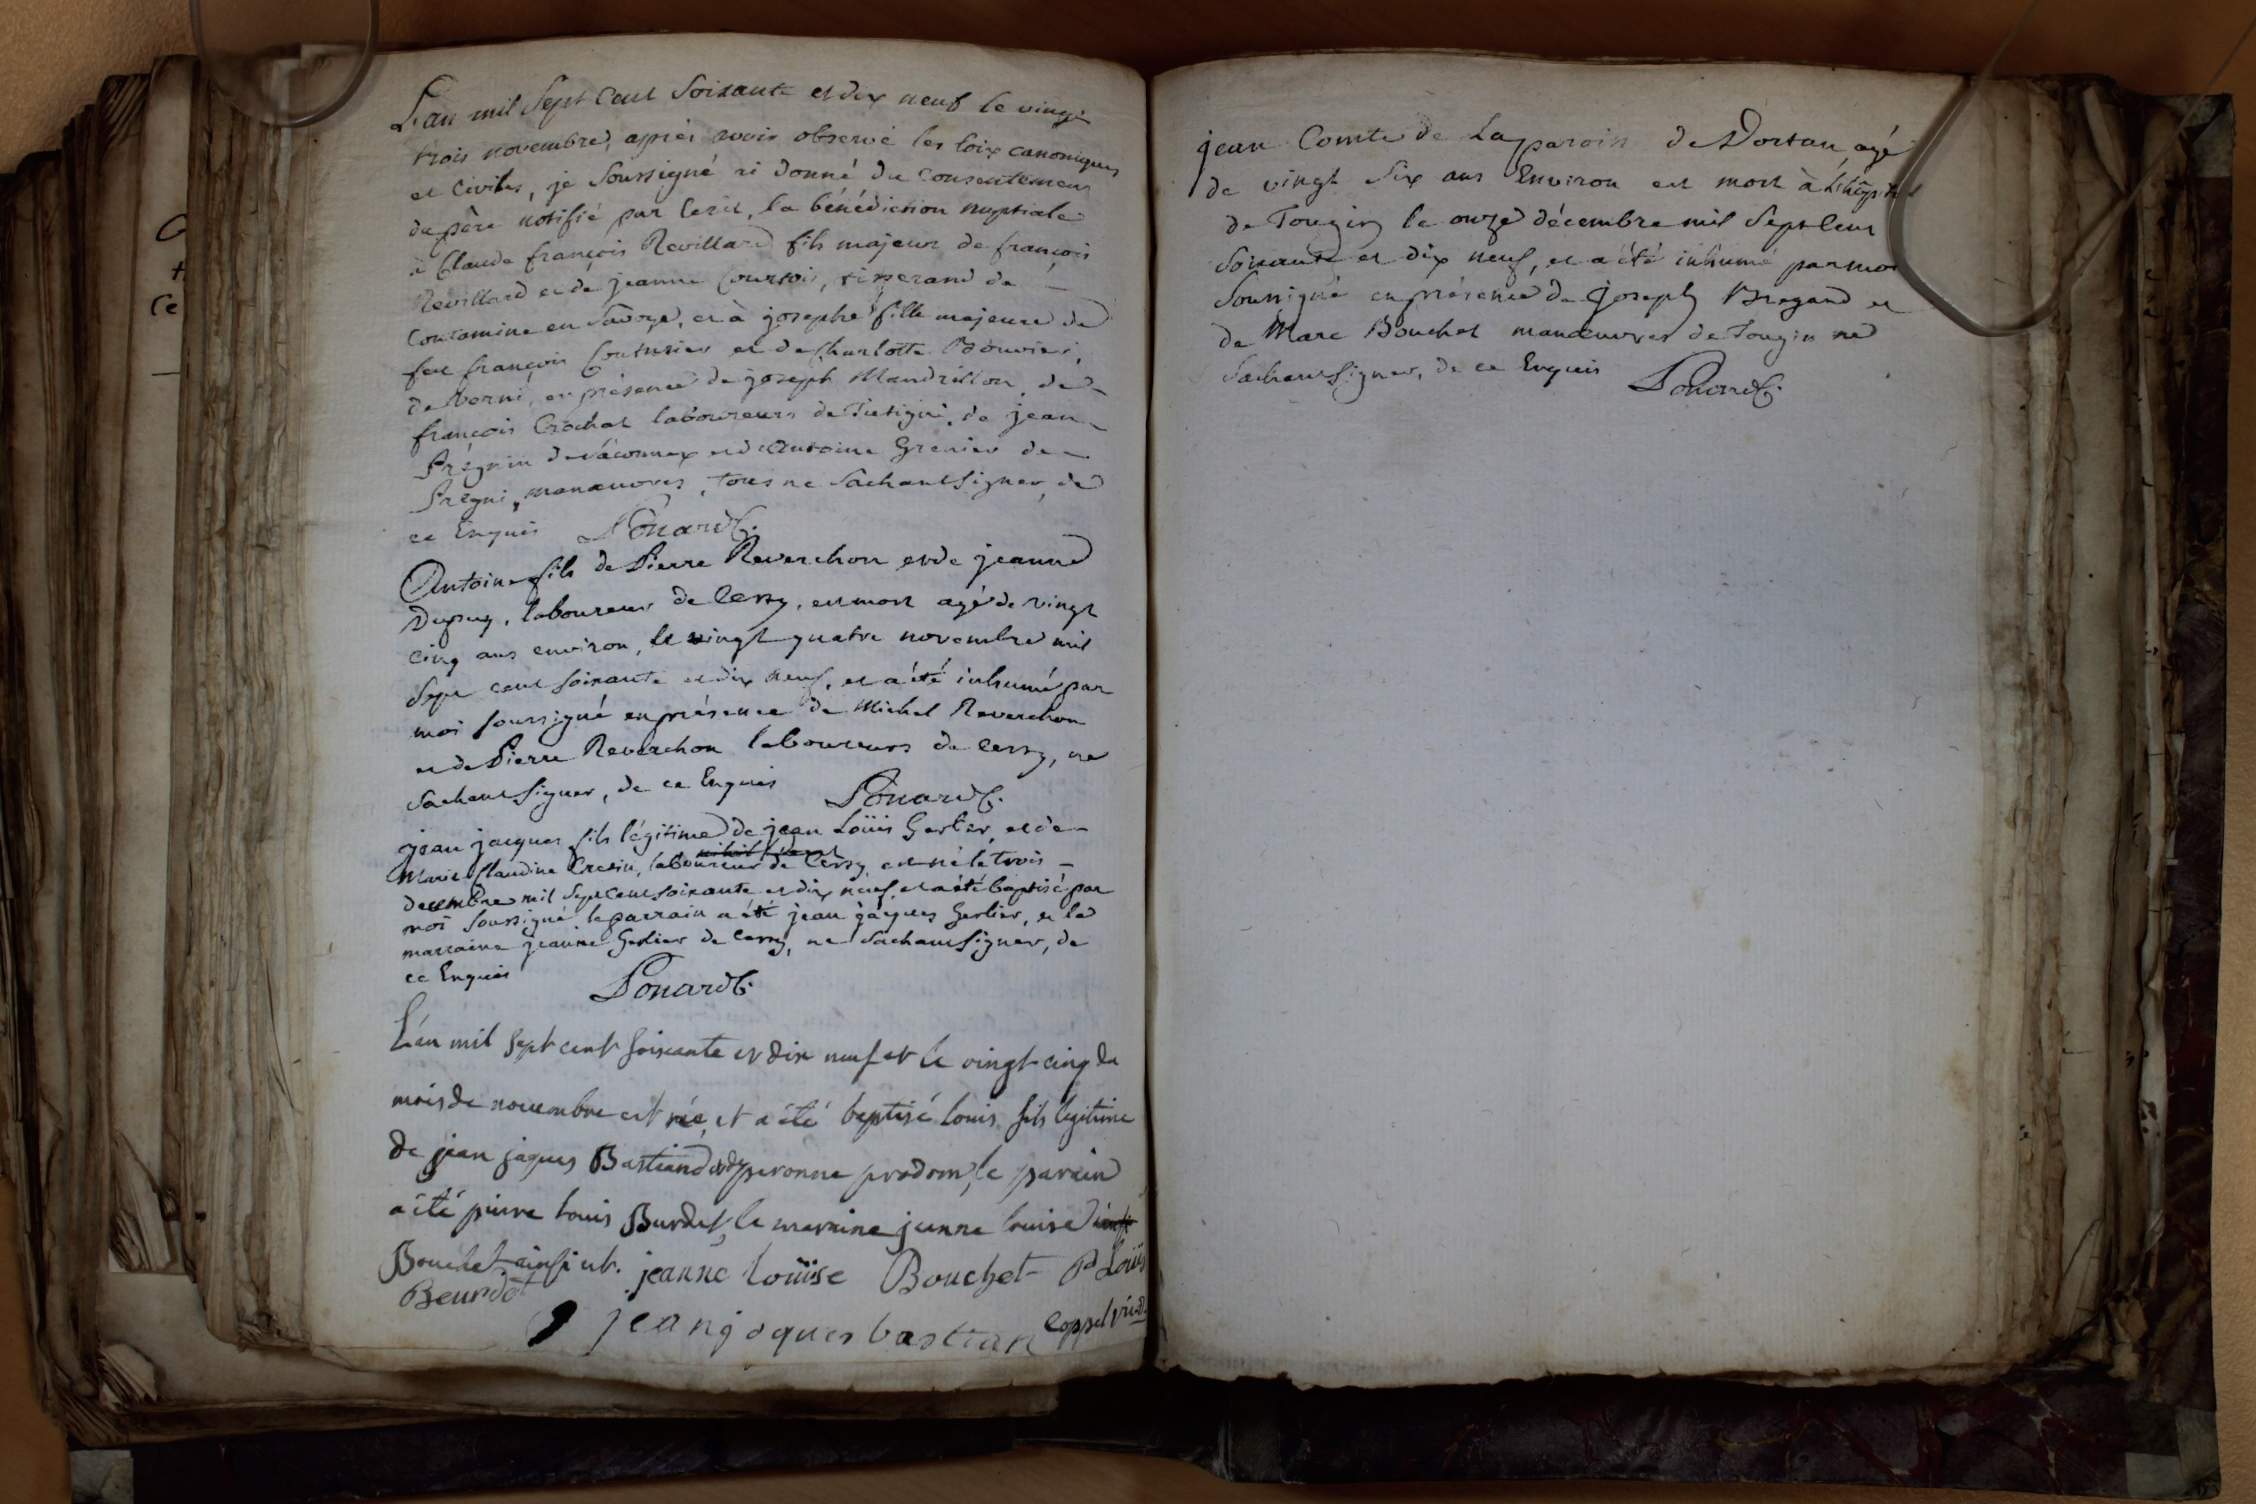 L'an mil Sept Cent Soixante et dix neuf le vingt
trois novembre, après avoir observé les loix canoniques
et Civiles, je Soussigné ai donné du Consentement
du père notifié par Ecrit, la bénédiction nuptiale
à Claude françois Revillard fils majeur de françois
Revillard et de jeanne Courtois, tisserand de
Contamine en Savoye, et à josephe fille majeure de
feu françois Couturier et de Charlotte Bouvier,
de Verni, en présence de joseph Mandrillon, de
françois Crochat laboureurs de Pietigni, de jean
Prégnin de Váconnex et d'Antoine Grenier de
Prégni, manœuvres, tous ne Sachant Signer, de
ce Enquis Ponard C.
Antoine fils de Pierre Reverchon et de jeanne
Dupuy, laboureur de Cessy, est mort agé de vingt
cinq ans environ, le vingt quatre novembre mil
Sept cent soixante et dix neuf, et a été inhumé par
moi soussigné en présence de Michel Reverchon
et de Pierre Reverchon laboureurs de Cessy, ne
Sachant Signer, de ce Enquis Ponard C.
jean jacques fils légitime de jean Loüis Gerlier et de
Marie Claudine Cretin, laboureur de Cessy est né le trois
decembre mil Sept cent soixante et dix neuf et a été baptisé par
moi soussigné le parrain a été jean jacques Gerlier, et la
marraine jeanne Gerlier de Cessy, ne Sachant Signer, de
ce Enquis Ponard C.
L'an mil sept cent soixante et dix neuf et le vingt cinq du
mois de novembre est née, et a été baptisé louis fils legitime
de jean jaques Bastian et de peronne prodom, le parain
a été pierre louis Burdet, la maraine jeanne louise
Bouchet ainsi est. jeanne loüise Bouchet P Loüis
Beurdet
jean jaques bastian Coppel
jean Comte de La paroiss de Dortan agé
de vingt Six ans Environ est mort à L'hôpital
de Tougin le onze décembre mil Sept Cent
Soixante et dix neuf, et a été inhumé par moi
Soussigné en présence de Joseph Bregand et
de Marc Bouchet manœuvres de Tougin ne
Sachant Signer, de ce Enquis Ponard C.